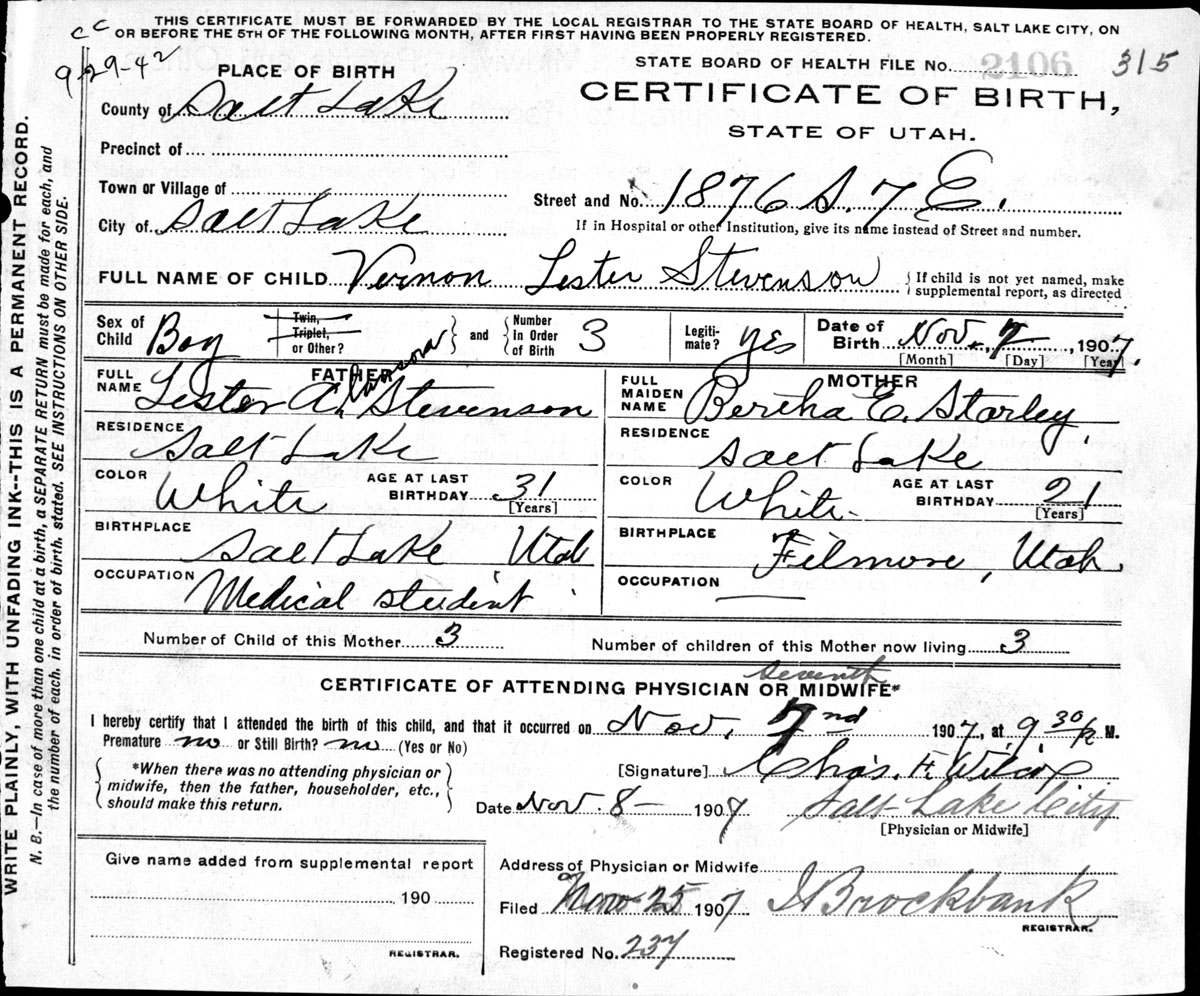 THIS CERTIFICATE MUST BE FORWARDED BY THE LOCAL REGISTRAR TO THE STATE BOARD OF HEALTH, SALT LAKE CITY, ON
OR BEFORE THE 5TH OF THE FOLLOWING MONTH, AFTER FIRST HAVING BEEN PROPERLY REGISTERED.
CC
9/29-42
STATE BOARD OF HEALTH FILE No. 2106 315
PLACE OF BIRTH
CERTIFICATE OF BIRTH,
STATE OF UTAH.
County of Salt Lake
Precinct of
Town or Village of
Street and No. 1876 S. 7 E.
City of Salt Lake
If in Hospital or other Institution, give its name instead of Street and number.
FULL NAME OF CHILD Vernon Lester Stevenson
If child is not yet named, make
supplemental report, as directed
Sex of Child Boy
Twin,
Triplet,
or Other?
and
Number
In Order
of Birth 3
Legiti-
mate? yes
Date of
Birth Nov. 7, 1907.
[Month] [Day] [Year]
FATHER
FULL
NAME Lester A. Stevenson
RESIDENCE Salt Lake
COLOR White
AGE AT LAST
BIRTHDAY 31
[Years]
BIRTHPLACE Salt Lake Utah
OCCUPATION Medical student
MOTHER
FULL
MAIDEN
NAME Bertha E. Starley,
RESIDENCE Salt Lake
COLOR White
AGE AT LAST
BIRTHDAY 21
[Years]
BIRTHPLACE Filmore, Utah
OCCUPATION
Number of Child of this Mother 3
Number of children of this Mother now living 3
CERTIFICATE OF ATTENDING PHYSICIAN OR MIDWIFE*
seventh
I hereby certify that I attended the birth of this child, and that it occurred on Nov. 7nd 1907, at 9 30 M.
Premature no or Still Birth? no (Yes or No)
*When there was no attending physician or
midwife, then the father, householder, etc.,
should make this return.
[Signature] Chas. F. Wilcox
Date Nov. 8- 1907
Salt Lake City
[Physician or Midwife]
Give name added from supplemental report
190
REGISTRAR.
Address of Physician or Midwife
Filed Nov 25 1907 Brockbank
REGISTRAR.
Registered No. 237
WRITE PLAINLY, WITH UNFADING INK--THIS IS A PERMANENT RECORD.
N. B.—In case of more than one child at a birth, a SEPARATE RETURN must be made for each, and
the number of each, in order of birth, stated. SEE INSTRUCTIONS ON OTHER SIDE.